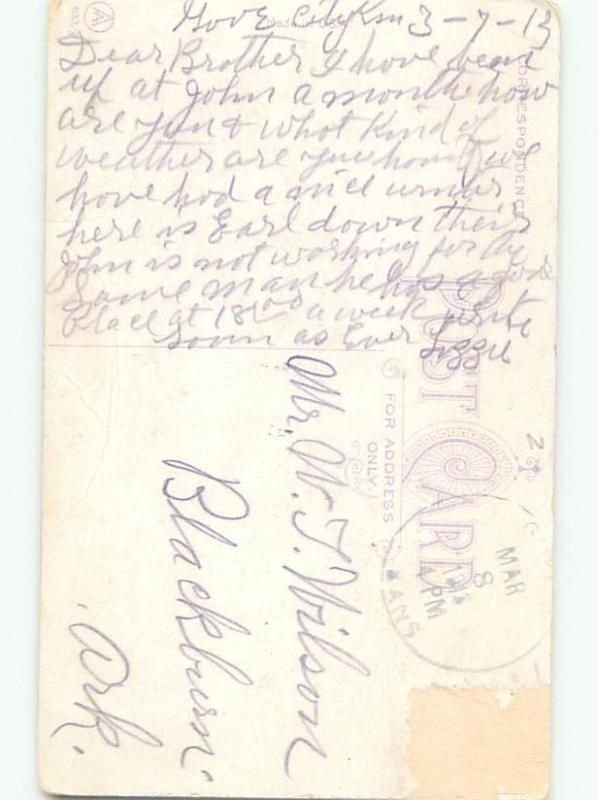 Gove City Ksn 3-7-13
Dear Brother I have bean
up at John a month how
are you & what Kind of
weather are you having we
have had a nice winter
here is Earl down their
John is not working for the
Same man he has a good
Place at 18 00 a week write
soon as Ever Lizzie
POST CARD
CORRESPONDENCE
FOR ADDRESS
ONLY
Mr. W. T. Wilson
Blackburn.
Ark.
MAR
8
PM
KANS
2
A